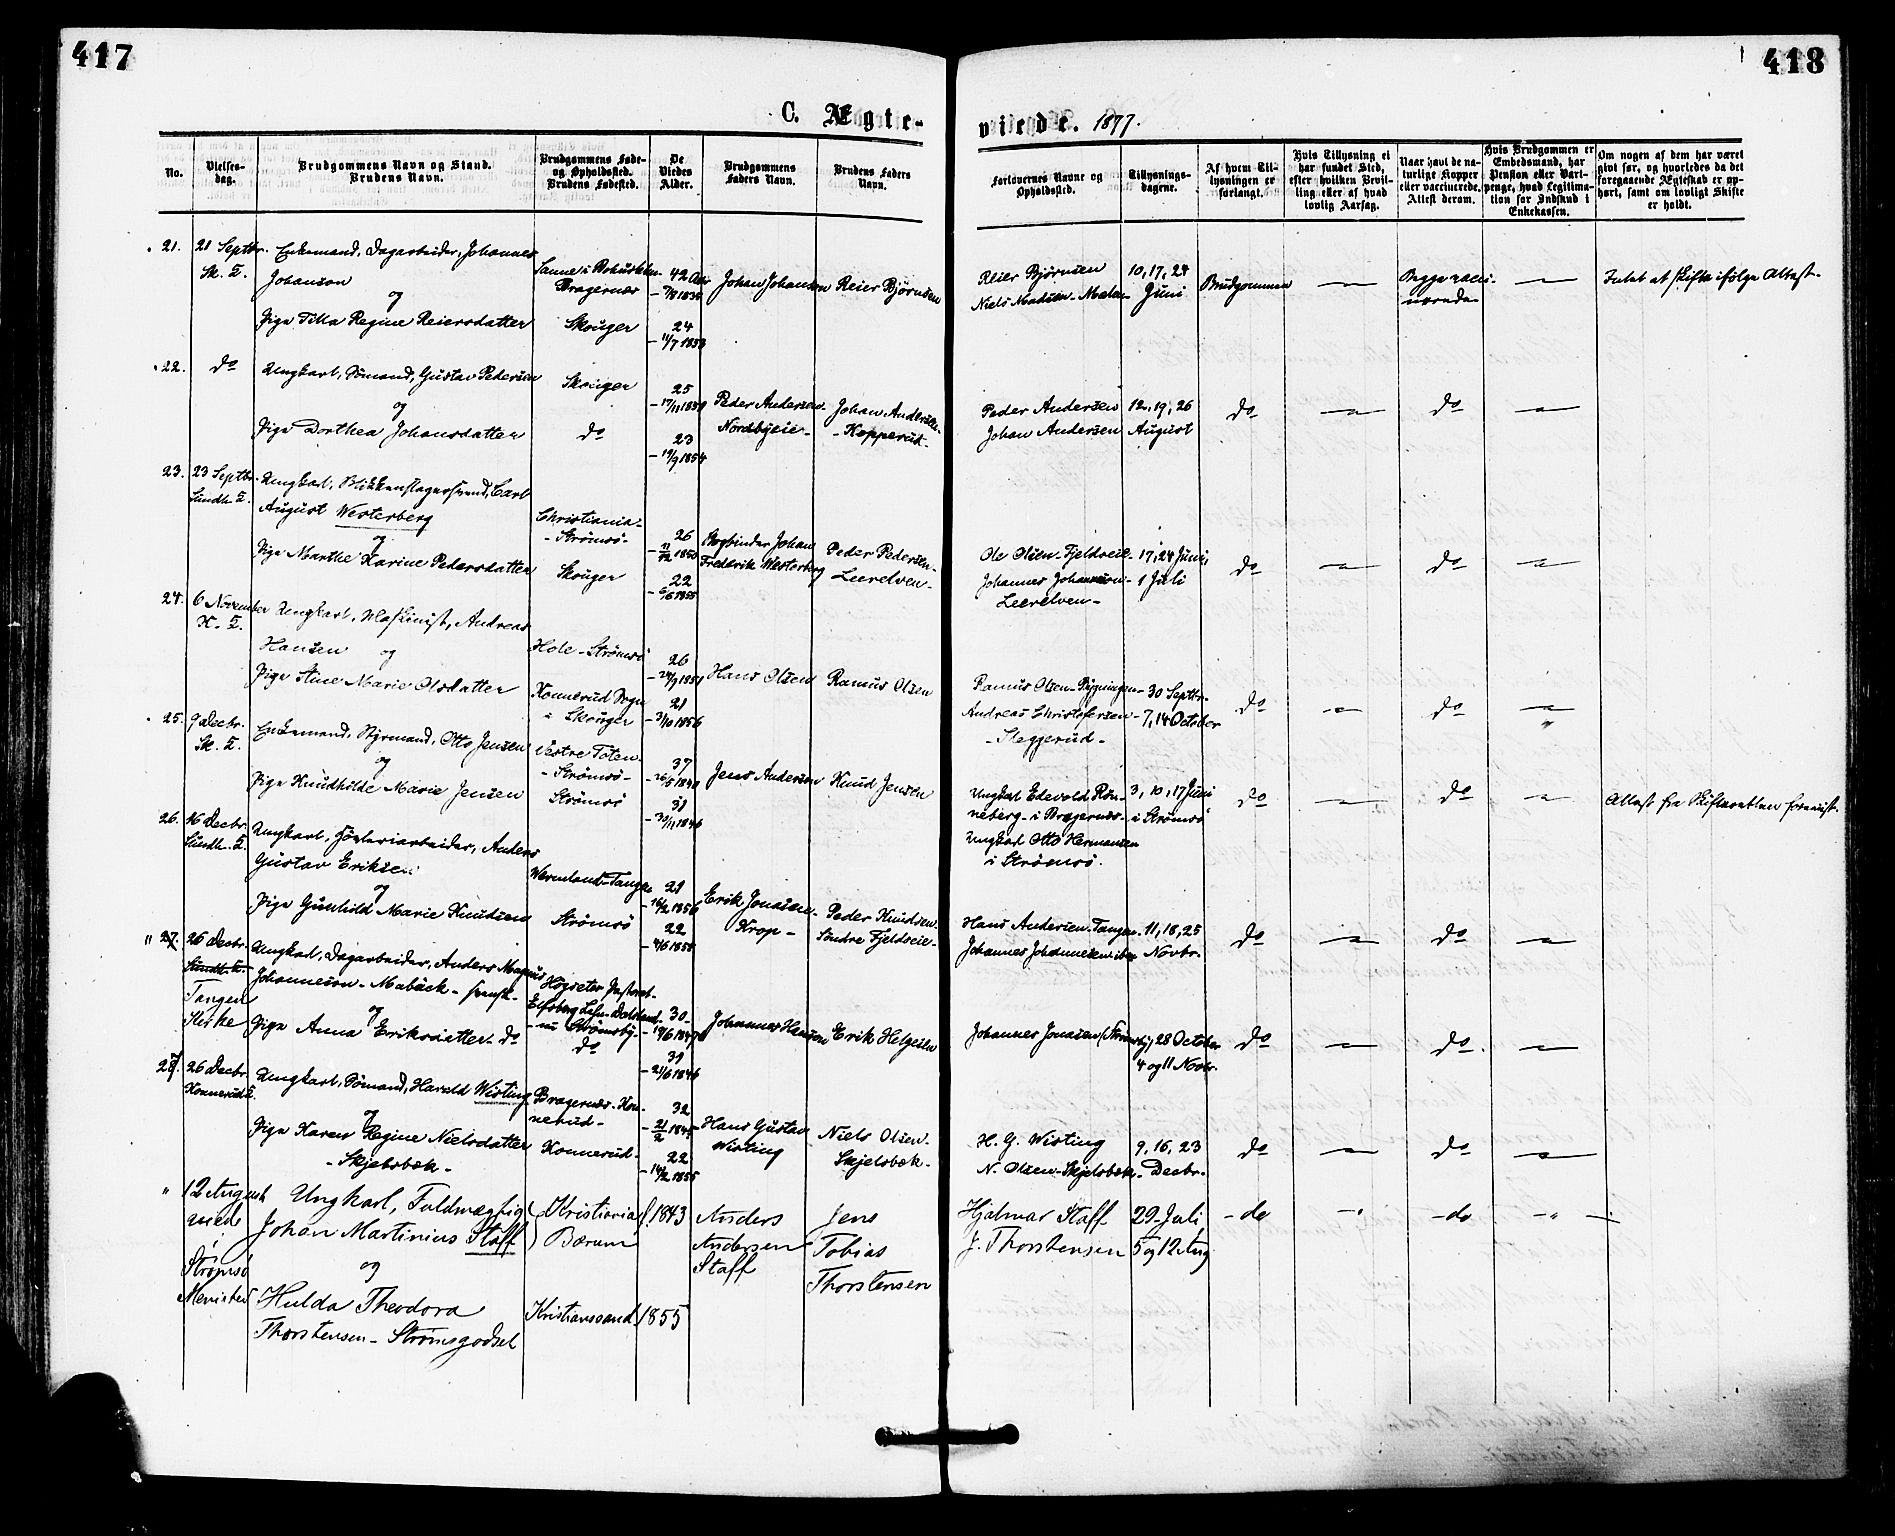 417
418
C. Ægte-
viede. 1877.
No.
Vielses-
dag.
Brudgommens Navn og Stand.
Brudens Navn.
Brudgommens Føde-
og Opholdssted.
Brudens Fødested.
De
Viedes
Alder.
Brudgommens
Faders Navn.
Brudens Faders
Navn.
Forlovernes Navne og
Opholdssted.
Tillysnings-
dagene.
Af hvem Til-
lysningen er
forlangt.
Hvis Tillysning ei
har fundet Sted,
efter hvilken Bevil-
ling eller af hvad
lovlig Aarsag.
Naar havt de na-
turlige Kopper
eller vaccinerede.
Attest derom.
Hvis Brudgommen er
Embedsmand, har
Pension eller Vart-
penge, hvad Legitima-
tion for Indskud i
Enkekassen.
Om nogen af dem har været
givt før, og hvorledes da det
foregaaende Ægteskab er op-
hørt, samt om lovligt Skifte
er holdt.
21. 21 Septbr. Enkemand, Dagarbeider, Johannes
Sk. K. Johanson
Bragernæs
42
Johan Johansen Reier Bjørnsen
Reier Bjørnsen 10, 17, 24
Niels Madsen Juni
Brudgommen
Begge vacci-
nerede
Intet at skifte ifølge Attest.
og
Pige Tilla Regine Reiersdatter Skouger 24
11/7 1853
22. do Ungkarl, Sømand, Gustav Pedersen Skouger 25
Peder Andersen Johan Andersen
Nordbyeie - Kopperud -
Peder Andersen 12, 19, 26
Johan Andersen August
do do
og
Pige Dorthea Johansdatter do 23
19/9 1854
23. 23 Septbr. Ungkarl, Blikkenslagersvend, Carl
Sundh. K. August Westerberg Christiania-
- Strømsø - 26
1850
Bogbinder Johan Peder Pedersen
Fredrik Westerberg Leerelven -
Ole Olsen - Fjeldveie - 17, 24 Juni,
Johannes Johannesen - 1 Juli
Leerelven -
do do
og
Pige Marthe Karine Pedersdatter Skouger 22
1855
24. 6 November Ungkarl, Maskinist, Andreas
K. K. Hansen Hole - Strømsø 26
1851
Hans Olsen Ramus Olsen
Ramus Olsen - 30 Septbr.
Andreas Christofersen - 7, 14 October
- Steggerud -
do do
og
Pige Stine Marie Olsdatter Konnerud Sogn 21
i Skouger 1856
25. 9 Decbr. Enkemand, Styrmand, Otto Jensen Vestre Toten
Sk. K. - Strømsø - 37
1840
Jens Andersen Knud Jensen
Ungkarl Edevold Røn- 3, 10, 17 Juni
neberg - i Bragernæs - i Strømsø
Ungkarl Otto Hermansen
i Strømsø.
do do
Attest fra Skifteretten forevist.
og
Pige Knudhilde Marie Jensen Strømsø 31
1846
26. 16 Decbr. Ungkarl, Høvleriarbeider, Anders
Sundh. K. Gustav Eriksen Wermland - Tangen 21
1856
Erik Jonasen Peder Knudsen
Krop - Søndre Fjeldveie -
Hans Andersen Tangen 11, 18, 25
Johannes Johannesen ibm Novbr.
do do
og
Pige Gunhild Marie Knudsen Strømsø 22
1855
27. 26 Decbr. Ungkarl, Dagarbeider, Anders Magnus
Sundh. K. Johanneson - Mabäck - svensk -
Tangen
Kirke
Elfsborg Lehn Dalsland
nu Strømsby - 30
1847
Johannes Hansen Erik Helgesen
Johannes Jonasen (Strømsby) 28 October
4 og 11 Novbr.
do do
og
Pige Anna Eriksdatter - do do 31
21/6 1846
27. 26 Decbr. Ungkarl, Sømand, Harald Wisting Bragernæs - Kon-
Konnerud K. nerud - 32
1845
Hans Gustav Niels Olsen
Wisting Skjelsbæk -
H. G. Wisting 9, 16, 23
N. Olsen - Skjelsbæk - Decbr.
do do
og
Pige Karen Regine Nielsdatter Konnerud - 22
- Skjelsbæk - 14/2 1855
" 12 August Ungkarl, Fuldmægtig Kristiania f. 1843 Anders Jens
med Johan Martinius Staff Bærum Andersen Tobias
Staff Thorstensen
Hjalmar Staff 29 Juli
J. Thorstensen 5 og 12 Aug
- do - do
Strømsø og
Menighed Hulda Theodora Kristianssand 1855
Thorstensen - Strømsgodset